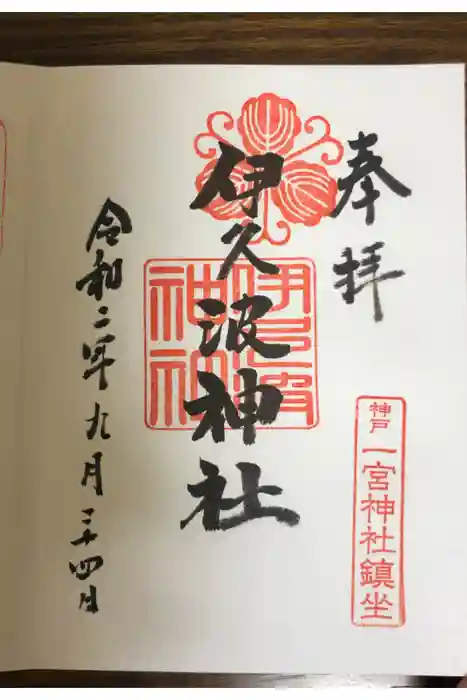 奉拝
神戸
一宮神社鎮坐
伊久波神社
伊久波神社
令和二年九月二十四日